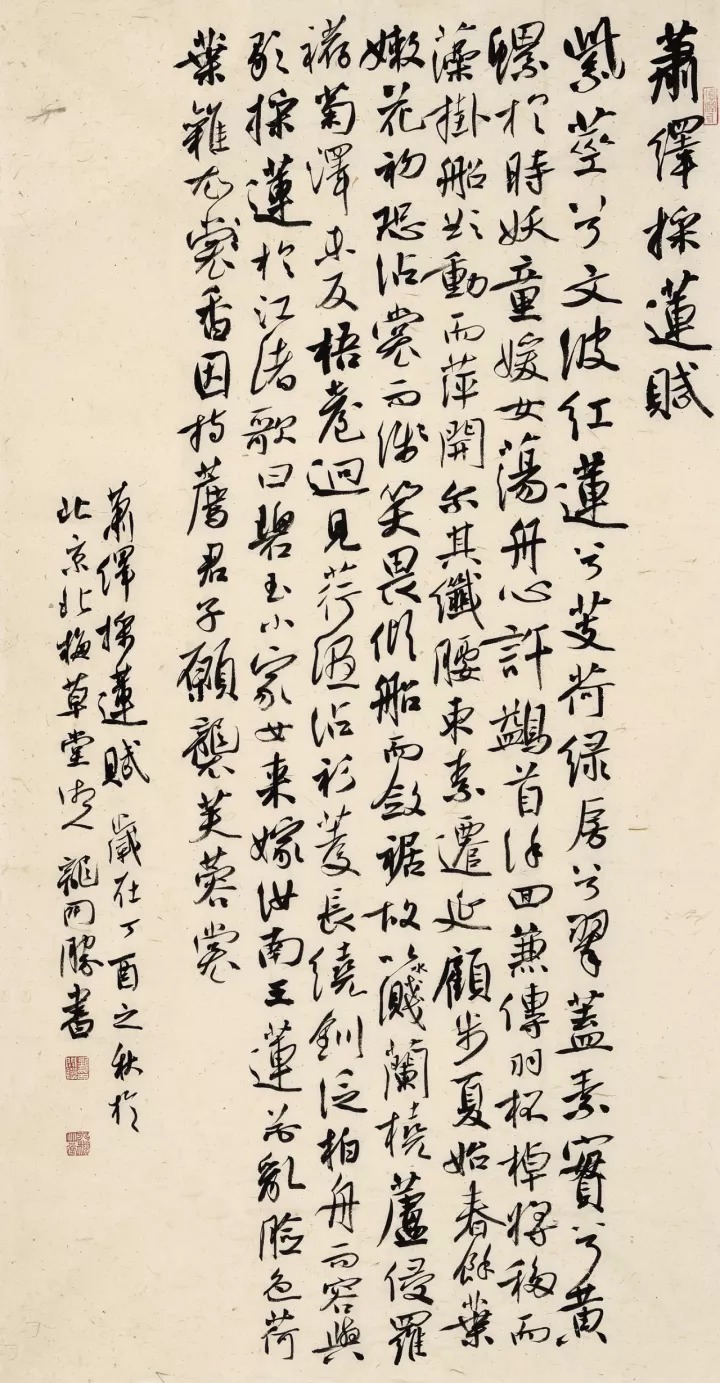 蕭繹採蓮賦
紫莖兮文波紅蓮兮芰荷緑房兮翠蓋素實兮黃
螺於時妖童媛女蕩舟心許鷁首徐回兼傳羽杯棹將移而
藻掛船欲動而萍開尓其纖腰束素遷延顧步夏始春餘葉
嫩花初恐沾裳而淺笑畏傾船而斂裾故以濺蘭橈蘆侵羅
菊澤未反梧臺迥見荇濕沾衫菱長繞釧泛柏舟而容與
歌採蓮於江渚歌曰碧玉小家女來嫁汝南王蓮花亂臉色荷
葉雜衣裳香因持薦君子願襲芙蓉裳
蕭繹採蓮賦 歲在丁酉之秋於
北京北梅草堂 龍開勝書